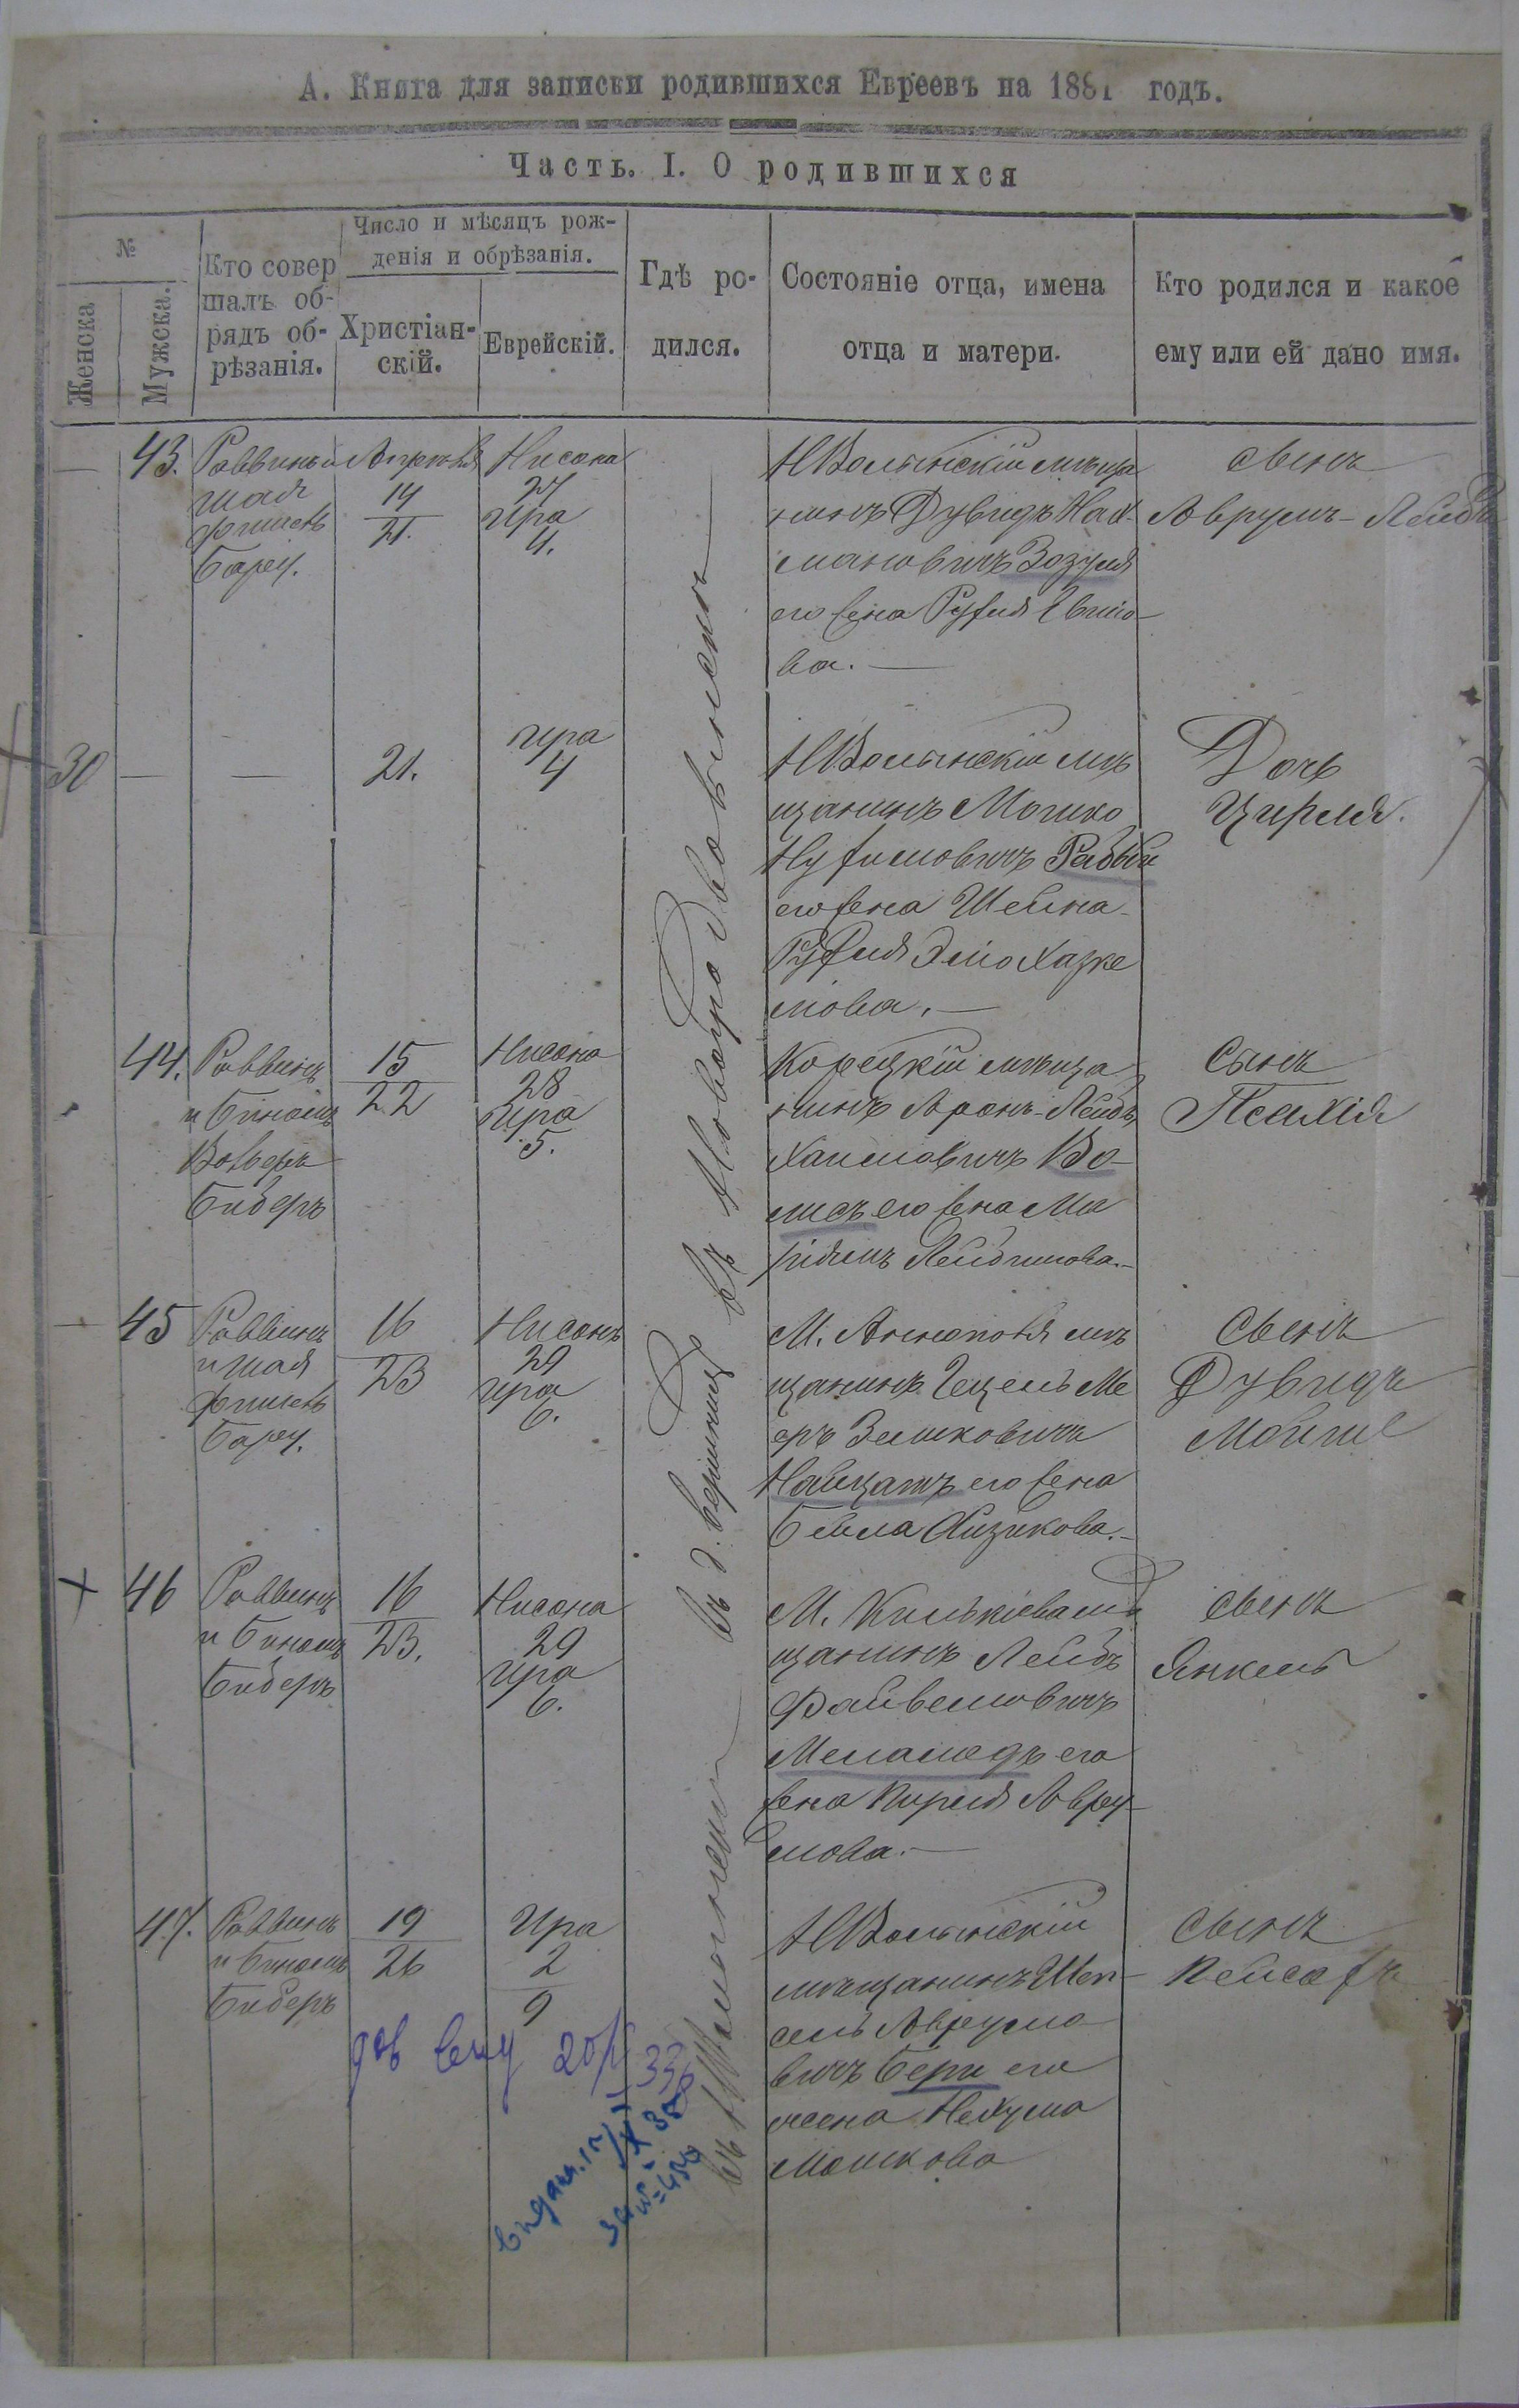 А. Книга для записки родившихся Евреевъ на 1881 годъ.
Часть. I. О родившихся
№
Женска
Мужска.
Кто совер
шалъ об-
рядъ об-
рѣзанія.
Число и мѣсяцъ рож-
денія и обрѣзанія.
Христіан-
скій.
Еврейскій.
Гдѣ ро-
дился.
Состояніе отца, имена
отца и матери.
Кто родился и какое
ему или ей дано имя.
43.
Раввинъ и
Шая
Фишель
Барац.
Апрѣля
14
21.
Нисана
27
Ира
4.
НВолынскій мѣща
нинъ Дувидъ Нах-
мановичъ Зозуля
его жена Рухля
ва.
Сынъ
Аврумъ-Лейбъ
30
21.
Ира
4
НВолынскій мѣ
щанинъ Мошко
Нухимовичъ Рабый
его жена Шейна
Рухля
лова.
Дочь
Цирля.
44.
Раввинъ
и Биномъ
Вольфъ
Биберъ
15
22
Нисана
28
Ира
5.
Корецкій мѣща
нинъ Аронъ-Лейбъ
Хаимовичъ Во-
лисъ его жена Ма
ріямъ Лейбишова.
Сынъ
Псахія
45
Раввинъ
и Шая
Фишель
Барац.
16
23
Нисанъ
29
Ира
6.
М. Аннополя мѣ
щанинъ Гецель Ме
еръ Зеликовичъ
его жена
Бейла Айзикова.
Сынъ
Дувидъ
Мойше
46
Раввинъ
и Биномъ
Биберъ
16
23.
Нисана
29
Ира
6.
М. Килькіева мѣ
щанинъ Лейбъ
Файвелиовичъ
Меламедъ его
жена Пирля Авру
мова.
Сынъ
Янкель
47.
Раввинъ
и Биномъ
Биберъ
19
26
Ира
2
9
НВолынскій
мѣщанинъ Шеп
сель Аврумо
вичъ Бери его
жена Нехума
Мошкова
Сынъ
Пейсахъ
въ Новоградволынскѣ